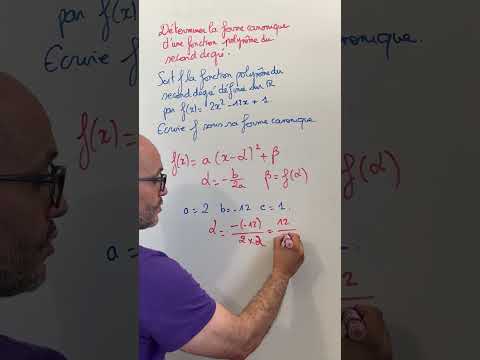 Déterminer la forme canonique
d'une fonction polynôme du
second degré.
Soit f la fonction polynôme du
second degré définie sur ℝ
par f(x) = 2x² - 12x + 1
Ecrire f sous sa forme canonique
f(x) = a (x - α)² + β
α = - b/2a β = f(α)
a = 2 b = -12 c = 1.
α = -(-12)/2×2 = 12/